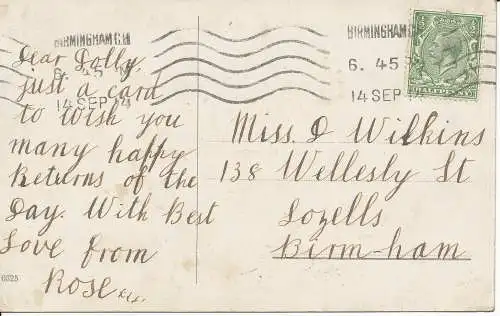 BIRMINGHAM
6. 45
14 SEP 14
BIRMINGHAM
6. 45
14 SEP
HALFPENNY
Dear Dolly,
just a card
to wish you
many happy
Returns of the
Day. With Best
Love from
Rose
6525
Miss. D Wilkins
138 Wellesly St
Lozells
Birm-ham